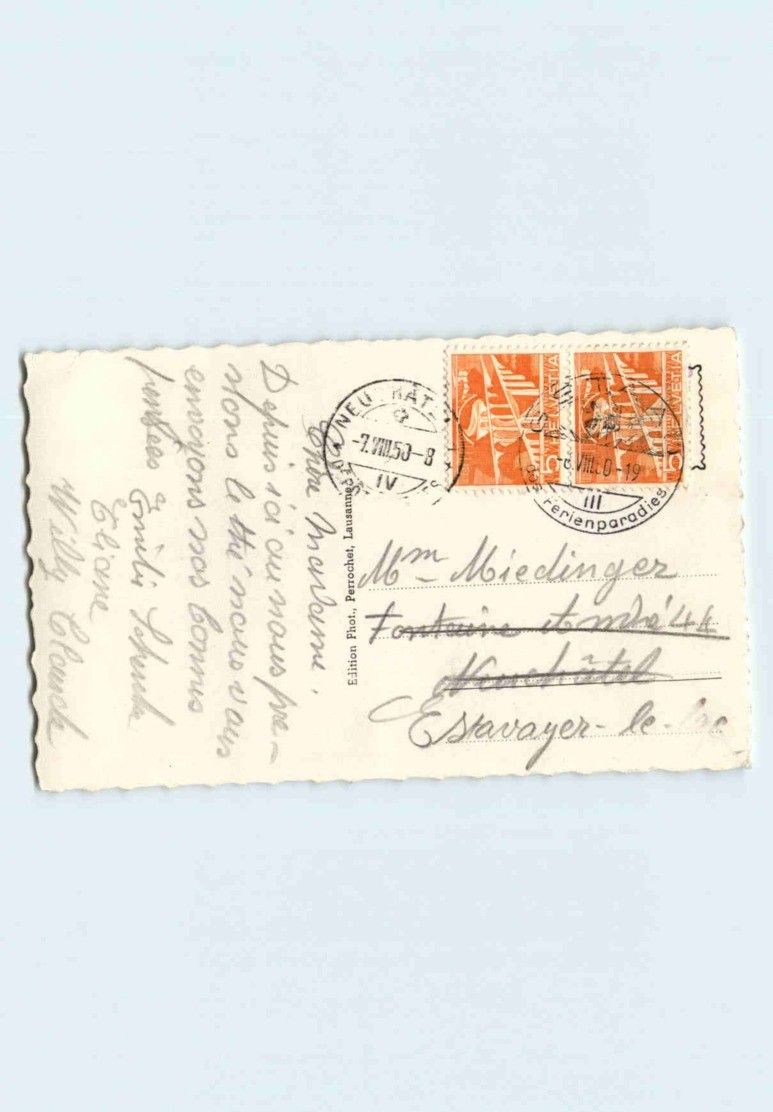 Chère Madame,
Depuis ici ou nous pre-
nons le thé nous vous
envoyons nos bonnes
pensées
Eliane
Willy
Edition Phot., Perrochet, Lausanne
NEU
-9.VIII.50-8
IV
HELVETIA
5
HELVETIA
5
VIII.50-19
III
Ferienparadies
Mme Miedinger
Fontaine André 44
Neuchâtel
Estavayer-le-lac